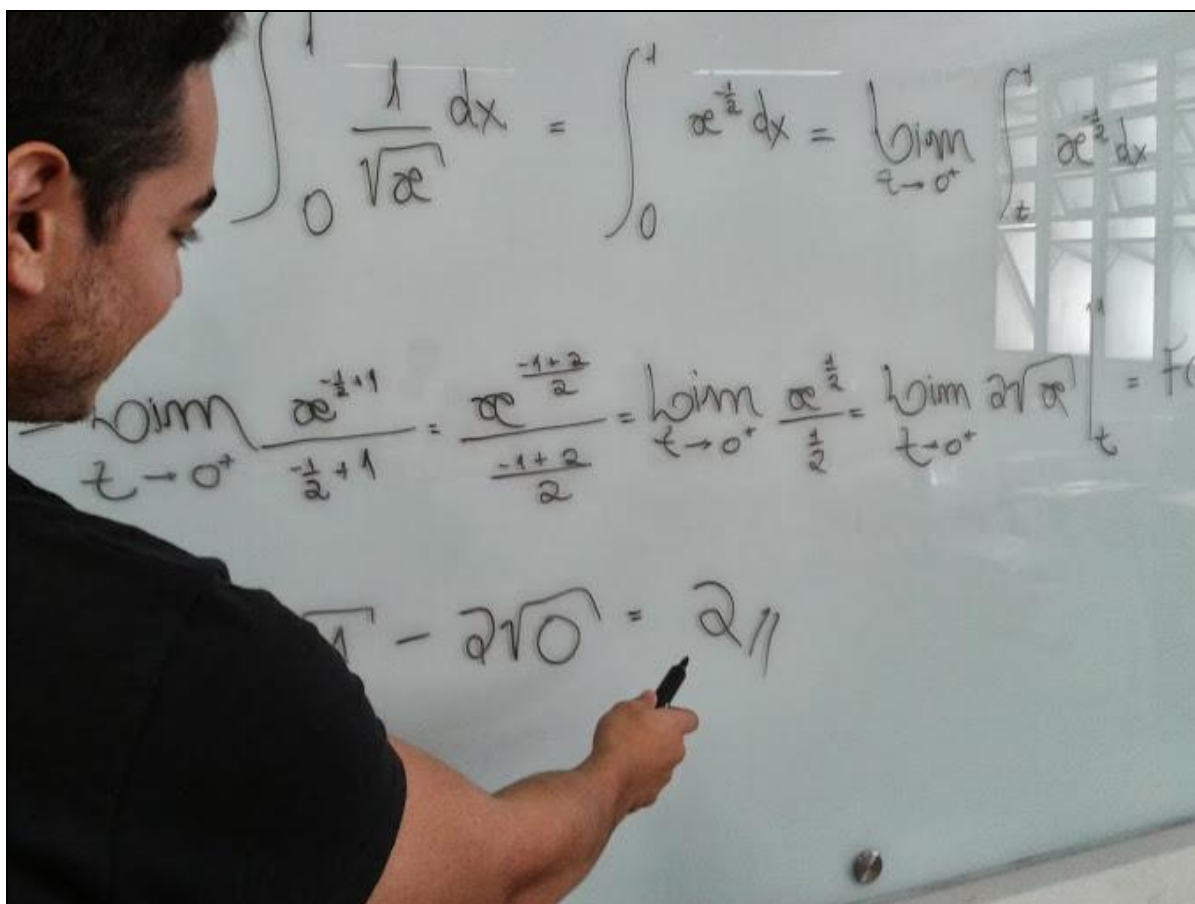 ∫₀¹ 1/√x dx = ∫₀¹ x^(-1/2) dx = Lim t→0⁺ ∫ₜ¹ x^(-1/2) dx
Lim t→0⁺ x^(-1/2+1)/(-1/2+1) = x^((-1+2)/2)/((-1+2)/2) = Lim t→0⁺ x^(1/2)/(1/2) = Lim t→0⁺ 2√x |ₜ¹ =
√1 - 2√0 = 2//